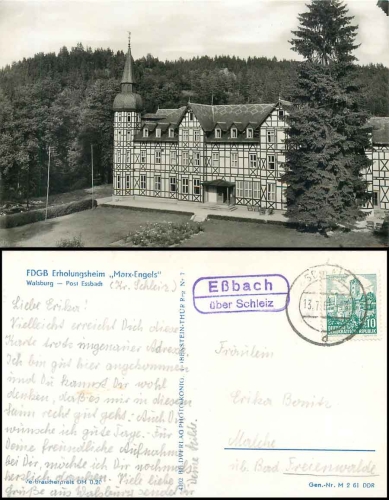 FDGB Erholungsheim „Marx-Engels"
Walsburg — Post Eßbach (Kr. Schleiz)
Liebe Erika!
Vielleicht erreicht Dich diese
Karte trotz ungenauer Adresse.
Ich bin gut hier angekommen
und Du kannst Dir wohl
denken, daß es mir in diesem
Haus recht gut geht. Auch Dir
wünsche ich gute Tage. Für
Deine freundliche Aufnahme
bei Dir, möchte ich Dir nochmals
herzlich danken. Viele liebe
Grüße aus Walsburg sendet
Deine Hilde.
Eßbach
über Schleiz
SCHLEIZ
13.7.
d
10
Fräulein
Erika Bonitz
Malche
üb. Bad Freienwalde
Gen.-Nr. M 2 61 DDR